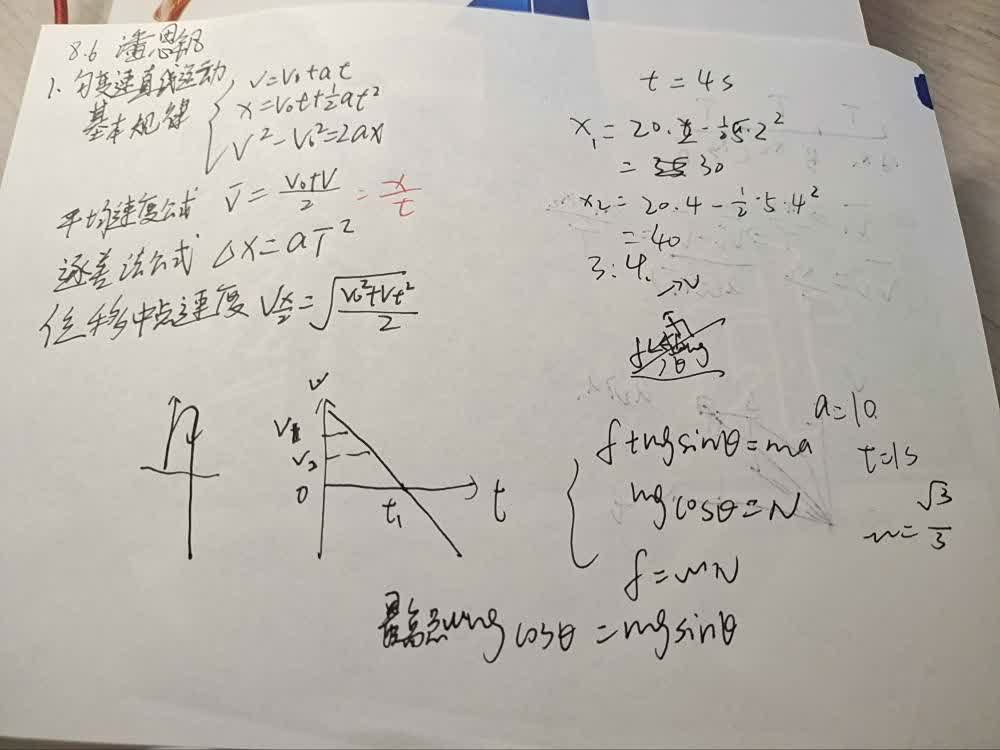 8.6 潘思钒
1、匀变速直线运动
基本规律
v=v₀+at
x=v₀t+½at²
v²-v₀²=2ax
平均速度公式 v̄=(v₀+v)/2 = x/t
逐差法公式 Δx=aT²
位移中点速度 Vx/2=√((v₀²+vt²)/2)
v
V₂
0
t₁
t
t=4s
x₁=20·2-½·5·2²
=30
x₂=20·4-½·5·4²
=40
3:4.
N
f mg
θ
f+mgsinθ=ma
mgcosθ=N
f=μN
a=10
t=1s
μ=√3/3
最高点μmgcosθ=mgsinθ